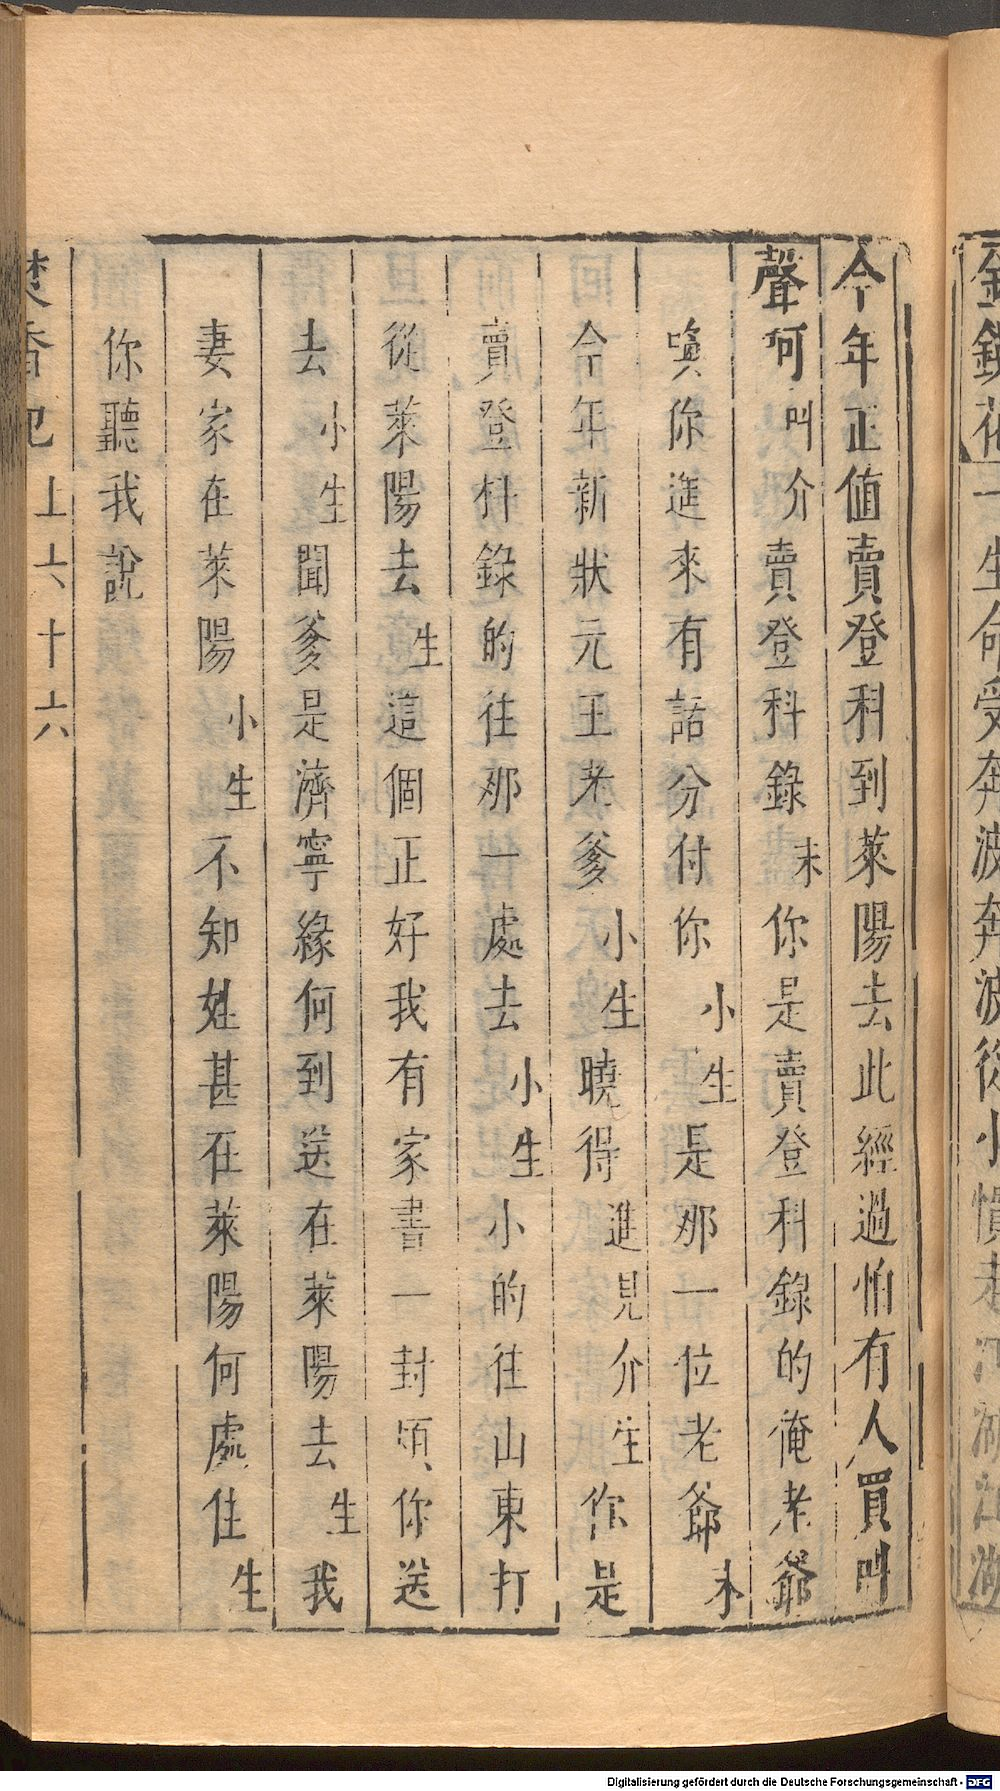 金錢花 一生命受奔波奔波從小慣走江湖江湖
今年正值賣登科到萊陽去此經過怕有人買叫
聲何叫介賣登科錄末你是賣登科錄的俺老爺
喚你進來有話分付你小生是那一位老爺末
今年新狀元王老爹小生曉得進見介生你是
賣登科錄的往那一處去小生小的往山東打
從萊陽去生這個正好我有家書一封煩你送
去小生聞爹是濟寧緣何到送在萊陽去生我
妻家在萊陽小生不知姓甚在萊陽何處住生
你聽我說
焚香記 上 六十六
Digitalisierung gefördert durch die Deutsche Forschungsgemeinschaft - DFG